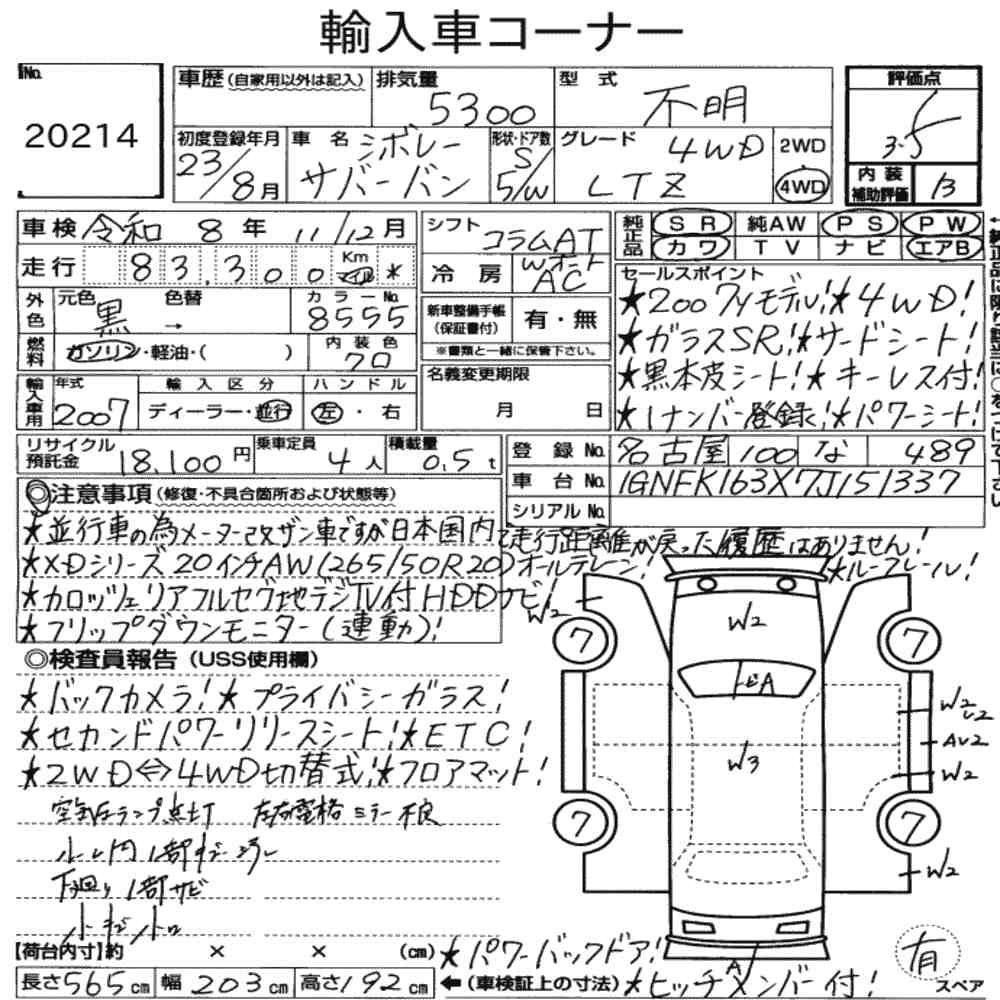 輸入車コーナー
No. 20214
車歴(自家用以外は記入) 排気量 5300 型式 不明 評価点 3.5
初度登録年月 23/8月 車名 シボレー サバーバン 形状・ドア数 S 5/W グレード 4WD LTZ 2WD 4WD 内装補助評価 B
車検 令和 8年 11/12月 シフト コラムAT 純正品 SR 純AW PS PW
走行 83,300 Km マイル * 冷房 Wオート AC カワ TV ナビ エアB
外色 元色 黒 色替 → カラーNo. 8555 新車整備手帳(保証書付) 有・無
※書類と一緒に保管下さい。
燃料 ガソリン・軽油・( ) 内装色 クロ
名義変更期限 月 日
輸入車用 年式 2007 輸入区分 ディーラー・並行 ハンドル 左・右
セールスポイント
★2007yモデル!★4WD!
★ガラスSR!★サードシート!
★黒本皮シート!★キーレス付!
★1ナンバー登録!★パワーシート!
リサイクル預託金 18,100円 乗車定員 4人 積載量 0.5t
登録No. 名古屋 100 な 489
車台No. 1GNFK163X7J151337
シリアルNo.
◎注意事項(修復・不具合箇所および状態等)
★並行車の為メーター改ザン車ですが日本国内で走行距離が戻った履歴はありません!
★XDシリーズ20インチAW(265/50R20)オールテレーン!★ルーフレール!
★カロッツェリアフルセグ地デジTV付HDDナビ!
★フリップダウンモニター(連動)!
◎検査員報告(USS使用欄)
★バックカメラ!★プライバシーガラス!
★セカンドパワーリリースシート!★ETC!
★2WD⇔4WD切替式!★フロアマット!
空気圧ランプ点灯 左右電格ミラー不良
ルーム内1部
下廻り1部サビ
小キズ
W2
7
7
W2
トビA
W2
AU2
W2
W3
7
7
W2
A
【荷台内寸】約 × × (cm)
★パワーバックドア!
有
スペア
長さ565cm 幅203cm 高さ192cm ←(車検証上の寸法)★ヒッチメンバー付!